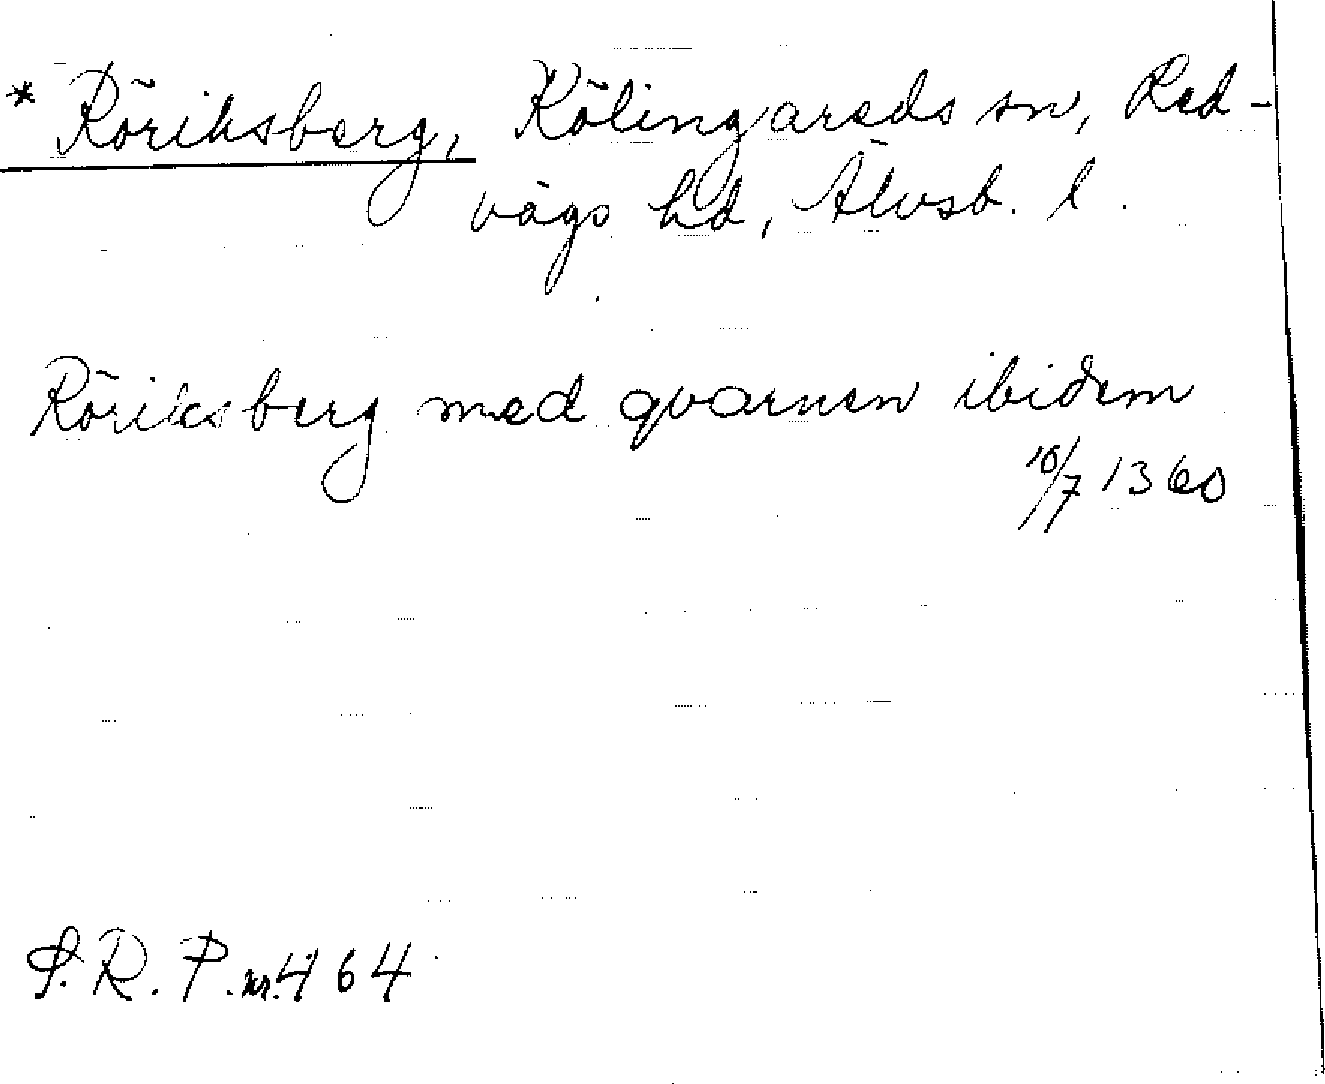 * Röriksberg, Kölingareds sn, Red-
vägs hd, Älvsb. l.
Röriksberg med qvarnen ibidem
10/7 1360
S. R. P. nr. 464